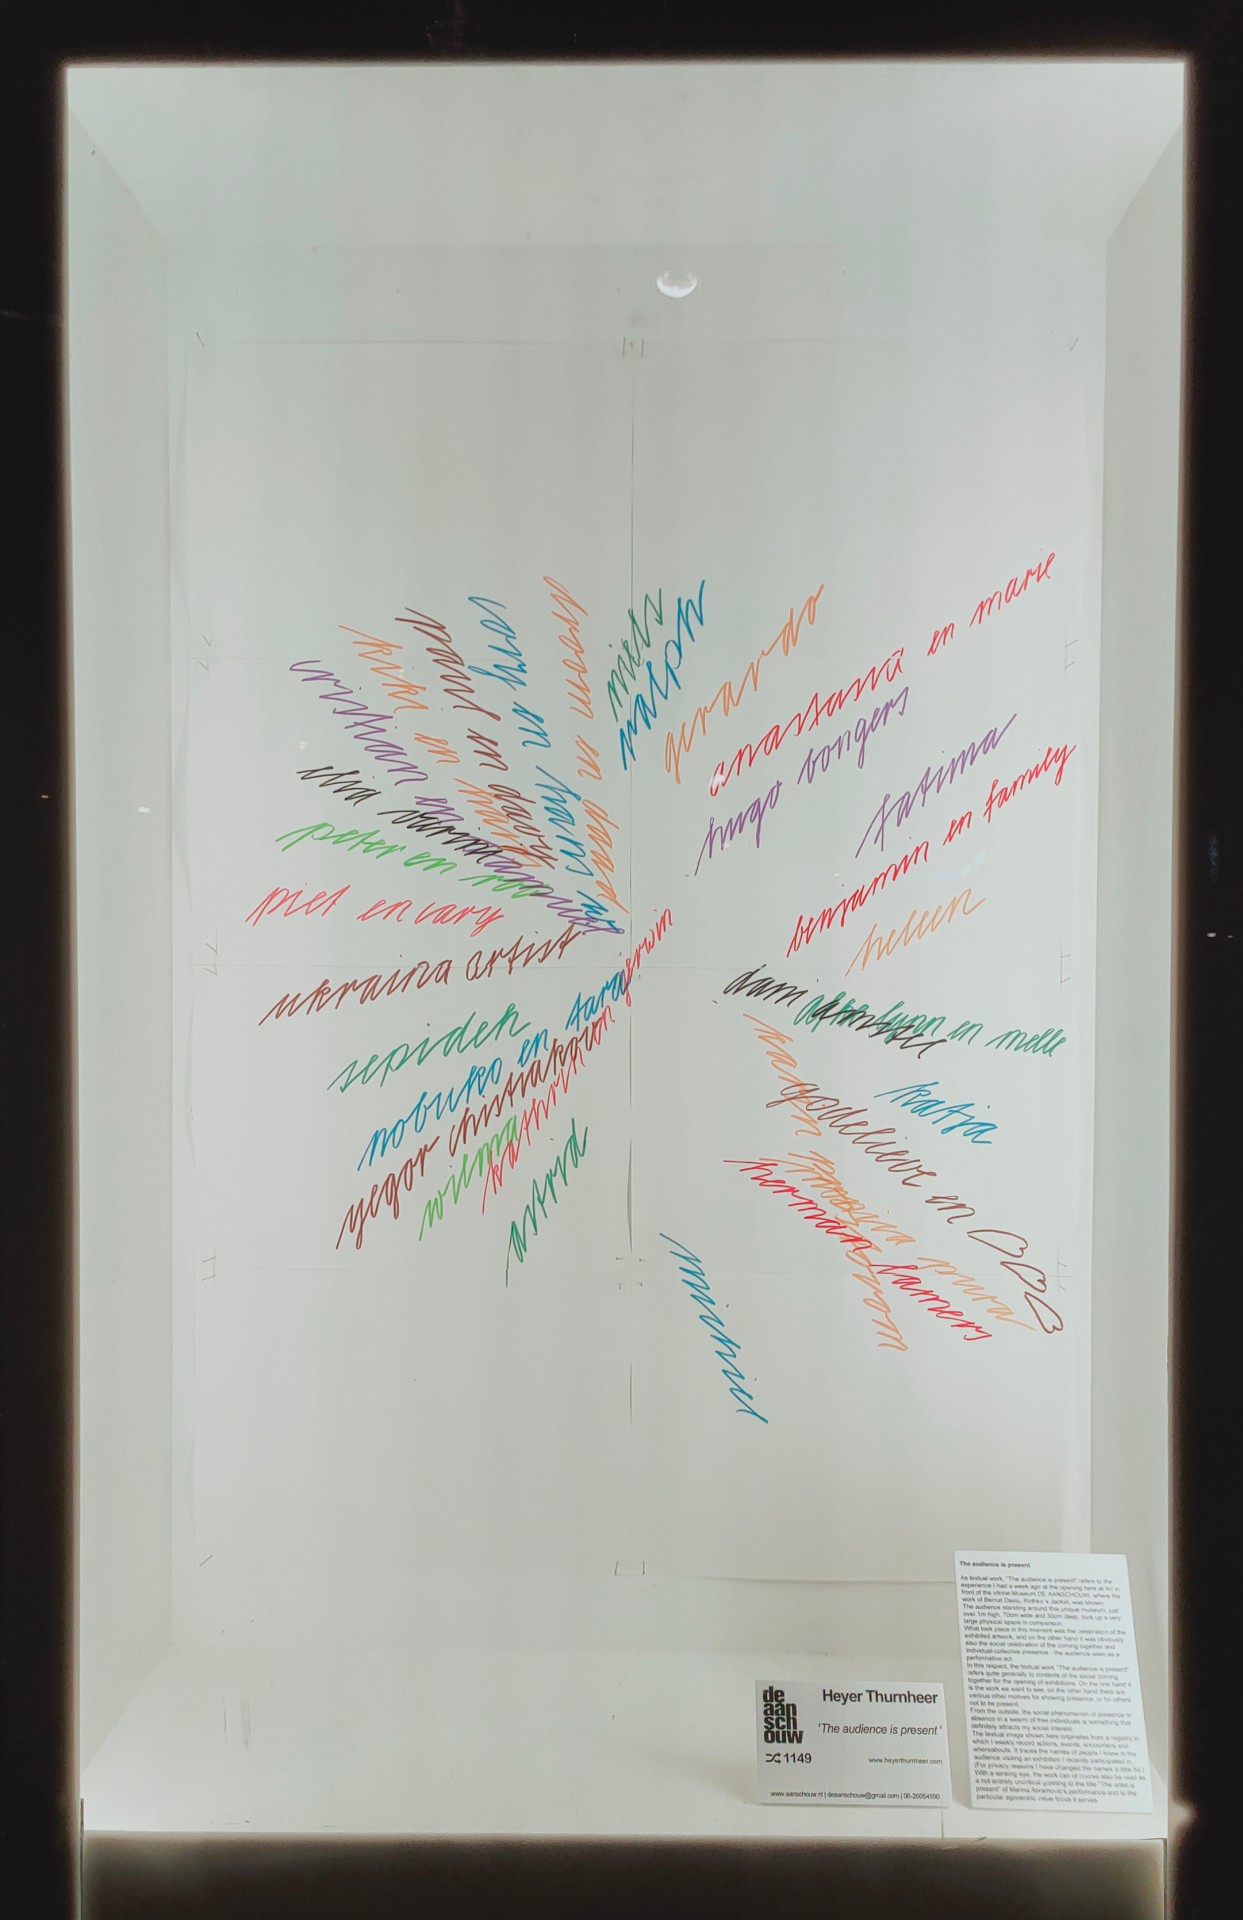 niels
ralph
gerardo
anastasia en marie
hugo bongers
fatima
benjamin en family
heleen
cristian en
kiki en
elia
peter en
piet en cary
ukraina artist
erwin
dani
lynn en melle
sepideh
nobuko en tara
yegor chistiakov
wilma
kathrin
astrid
katja
godelieve en
pura
herman lamers
michiel
The audience is present
As textual work, "The audience is present" refers to the
experience I had a week ago at the opening here at
front of the vitrine-Museum DE AANSCHOUW, where the
work of Bernat Daviu, Rothko's Jacket, was shown.
The audience standing around this unique museum, just
over 1m high, 70cm wide and 30cm deep, took up a very
large physical space in comparison.
What took place in this moment was the celebration of the
exhibited artwork, and on the other hand it was obviously
also the social celebration of the coming together and
individual-collective presence - the audience seen as a
performative act.
In this respect, the textual work "The audience is present"
refers quite generally to contexts of the social coming
together for the opening of exhibitions. On the one hand it
is the work we want to see, on the other hand there are
various other motives for showing presence, or for others
not to be present.
From the outside, the social phenomenon of presence or
absence in a swarm of free individuals is something that
definitely attracts my social interest.
The textual image shown here originates from a registry in
which I weekly record actions, events, encounters and
whereabouts. It traces the names of people I knew in the
audience visiting an exhibition I recently participated in.
(For privacy reasons I have changed the names a little bit.)
With a winking eye, the work can of course also be read as
a not entirely uncritical greeting to the title "The artist is
present" of Marina Abramovic's performance and to the
particular egocentric value focus it serves.
de
aan
sch
ouw
Heyer Thurnheer
'The audience is present'
1149
www.heyerthurnheer.com
www.aanschouw.nl | deaanschouw@gmail.com | 06-26054590